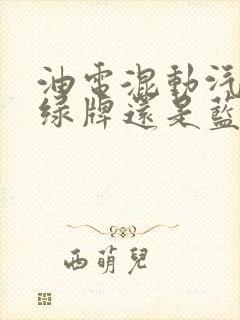 油電混動汽
綠牌還是藍
西萌兒